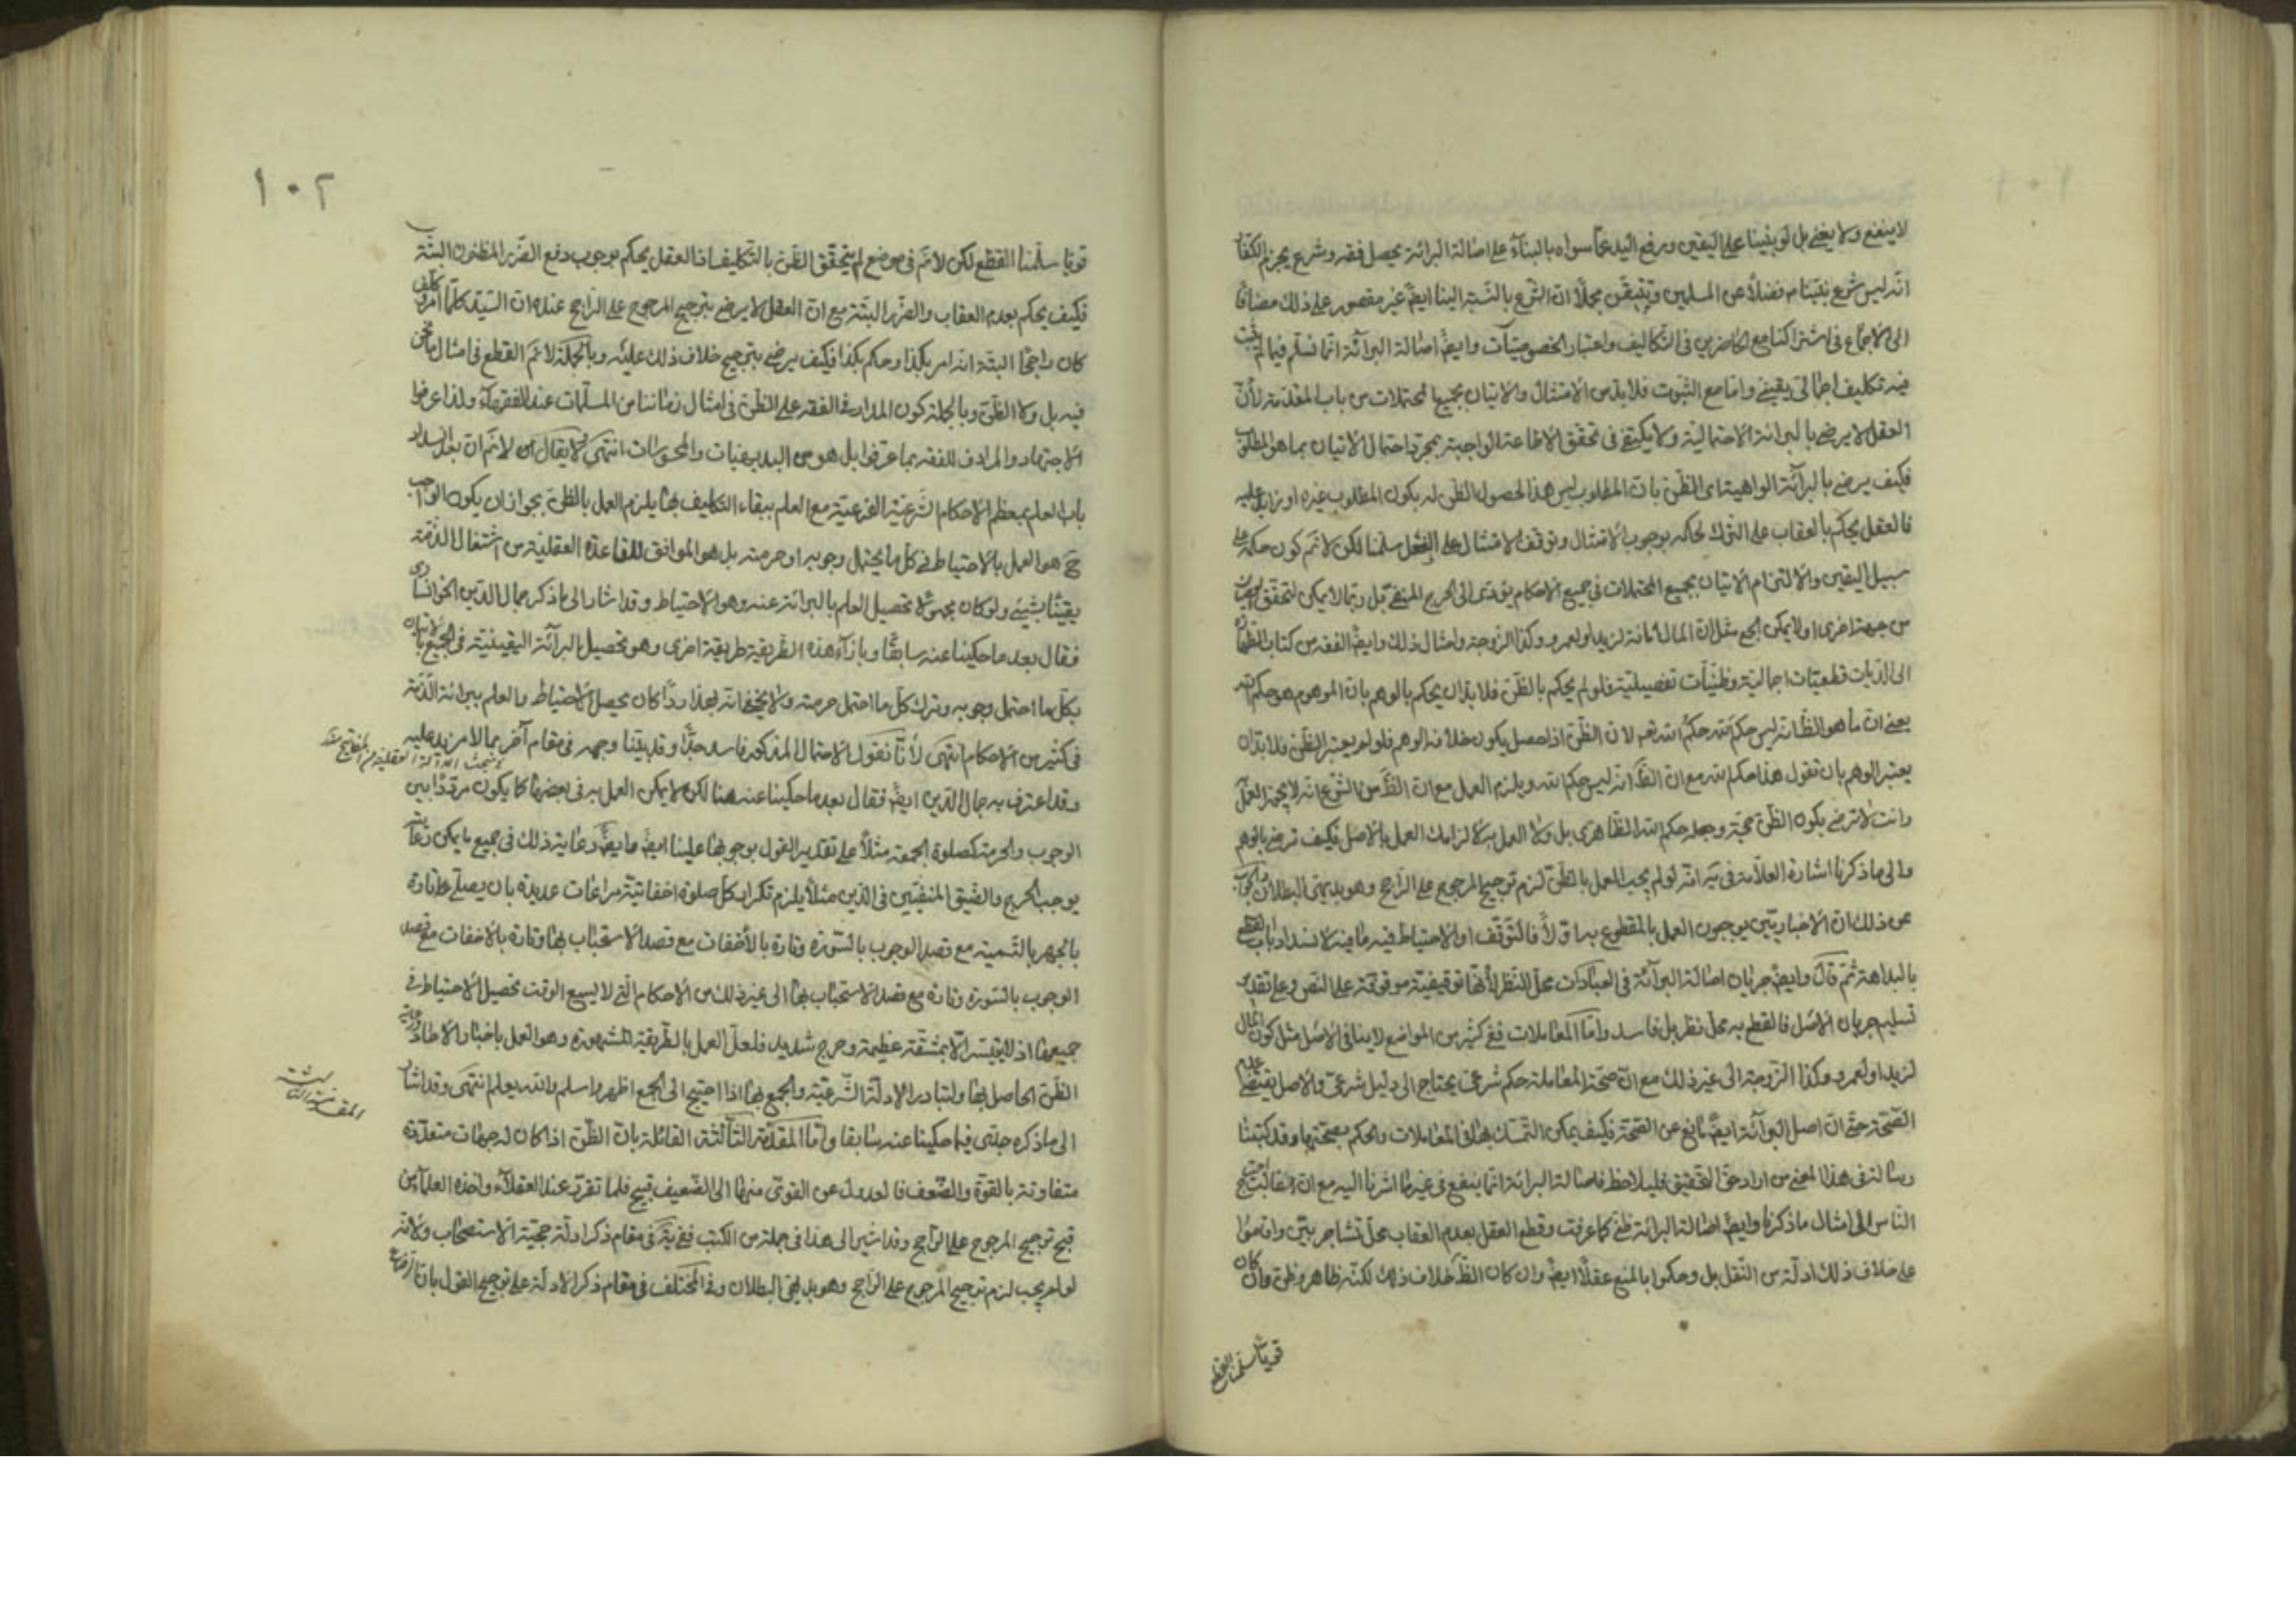 لا ينفع ولا يغني بل لو بنينا على اليقين ورفع اليد عما سواه بالبناء على اصالة البرائة يحصل فقه وشرع يجزم الكفار
انه ليس شرع نبينا م فضلاً عن المسلمين ونتيقن مجملاً ان الشرع بالنسبة الينا ايضً غير مقصور على ذلك مضافا
الى الاجماع في اشتراكنا مع الحاضرين في التكاليف واعتبار الخصوصيات وايضً اصالة البرائة انما نسلم فيما لم يثبت
فيه تكليف اجمالي يقيني واما مع الثبوت فلا بد من الامتثال والاتيان بجميع المحتملات من باب المقدمة لأن
العقل لا يرضى بالبرائة الاحتمالية ولا يكتفي في تحقق الاطاعة الواجبة بمجرد احتمال الاتيان بما هو المطلوب
فكيف يرضى بالبرائة الواهية اى الظن بان المطلوب ليس هذا لحصول الظن له بكون المطلوب غيره او زايد عليه
فالعقل يحكم بالعقاب على الترك لحكمه بوجوب الامتثال وتوقف الامتثال على الفعل سلمنا لكن لا نم كون حكمه على
سبيل اليقين والالتزام الاتيان بجميع المحتملات في جميع الاحكام يؤدى الى الحرج المنفي بل ربما لا يمكن لتحقق
من جهة اخرى او لا يمكن الجمع مثل ان المال امانة لزيد او لعمرو وكذا الزوجة وامثال ذلك وايضً الفقه من كتاب الطهارة
الى الديات قطعيات اجمالية وظنيات تفصيلية فلو لم يحكم بالظن فلا بد ان يحكم بالوهم بان الموهوم هو حكم الله
يعني ان ما هو الظ انه ليس حكم الله حكم الله تعم لان الظن اذا حصل يكون خلافه الوهم فلو لم يعتبر الظن فلا بد ان
يعتبر الوهم بان نقول هذا حكم الله مع ان الظ انه ليس حكم الله ويلزم العمل مع ان الظ من الشرع انه لا يجوز العمل
وانت لا ترضى بكون الظن حجة وجعله حكم الله الظاهرى بل ولا العمل به لالزامك العمل بالاصل فكيف ترضى بالوهم
والى ما ذكرنا اشارة العلامة في يه انه لو لم يجب العمل بالظن لزم ترجيح المرجوح على الراجح وهو بديهي البطلان والجواب
عن ذلك ان الاخباريين يوجبون العمل بالمقطوع به اولاً فالتوقف او الاحتياط فيه ما فيه لانسداد باب القطع
بالبداهة ثم قال وايضً جريان اصالة البرائة في العبادات محل النظر لأنها توقيفية موقوفة على النص وعلى تقدير
تسليم جريان الاصل فالقطع به محل نظر بل فاسد واما المعاملات ففي كثير من المواضع لا ينافي الاصل مثل كون المال
لزيد او لعمرو وكذا الزوجة الى غير ذلك مع ان صحة المعاملة حكم شرعي يحتاج الى دليل شرعي والاصل يقتضي عدم
الصحة حتى ان اصل البرائة ايضً مانع عن الصحة فكيف يمكن التمسك بها في المعاملات والحكم بصحتها وقد كتبنا
رسالة في هذا المعنى من اراد حق التحقيق فليلاحظ فاصالة البرائة انما ينفع في غير ما اشرنا اليه مع ان
الناس الى امثال ما ذكرنا وايضً اصالة البرائة ظني كما عرفت وقطع العقل بعدم العقاب محل تشاجر بين واقاموا
على خلاف ذلك ادلة من النقل بل وحكموا بالمنع عقلاً ايضً وان كان الظ خلاف ذلك لكنه ظاهر وظن وان كان
قويا سلمنا القطع
١٠٢
قويا سلمنا القطع لكن لا نم في موضع لم يتحقق الظن بالتكليف اذ العقل يحكم بوجوب دفع الضرر المظنون البتة
فكيف يحكم بعدم العقاب والضرر البتة مع ان العقل لا يرضى بترجيح المرجوح على الراجح عنده ان السيد كلما امر وكلف
كان راجحا البتة انه امر بكذا وحكم بكذا فكيف يرضى بترجيح خلاف ذلك عليه وبالجملة لا نم القطع في امثال ما نحن
فيه بل ولا الظن وبالجملة كون المدار في الفقه على الظن في امثال زماننا من المسلمات عند الفقهاء ولذا عرفوا
الاجتهاد والمرادف للفقه بما عرفوا بل هو من البديهيات والمحسوسات انتهى لا يقال لا نم ان بعد انسداد
باب العلم بمعظم الاحكام الشرعية الفرعية مع العلم ببقاء التكليف بها يلزم العمل بالظن بجواز ان يكون الواجب
ح هو العمل بالاحتياط في كل ما يحتمل وجوبه او حرمته بل هو الموافق للقاعدة العقلية من اشتغال الذمة
يقينًا بشيء ولو كان مجهولا تحصيل العلم بالبرائة عنه وهو الاحتياط وقد اشار الى ما ذكر جمال الدين الخوانسارى
فقال بعد ما حكينا عنه سابقًا وبازاء هذه الطريقة طريقة اخرى وهو تحصيل البرائة اليقينية في الجميع بالاتيان
بكل ما احتمل وجوبه وترك كل ما احتمل حرمته ولا يخفى انه بهذا كان يحصل الاحتياط والعلم ببرائة الذمة
في كثير من الاحكام انتهى لأنا نقول الاحتمال المذكور فاسد جدًا وقد بينا وجهه في مقام آخر بما لا مزيد عليه
وقد اعترف به جمال الدين ايضً فقال بعد ما حكينا عنه هنا لكن لا يمكن العمل به في بعضها كما يكون مرددًا بين
الوجوب والحرمة كصلوة الجمعة مثلاً على تقدير القول بوجوبها علينا ايضً وايضً رعاية ذلك في جميع ما يمكن رعايته
يوجب الحرج والضيق المنفيين في الدين مثلاً يلزم تكرار كل صلوة اخفاتية مراعات عديدة بان يصلي تارة
بالجهر بالتسمية مع قصد الوجوب بالسورة وتارة بالأخفات مع قصد الاستحباب بها وتارة بالاخفات مع قصد
الوجوب بالسورة وتارة مع قصد الاستحباب بها الى غير ذلك من الاحكام التي لا يسع الوقت تحصيل الاحتياط في
جميعها اذ لا يتيسر الا بمشقة عظيمة وحرج شديد فلعل العمل بالطريقة المشهورة وهو العمل باخبار الاحاد ورعاية
الظن الحاصل بها ولتبادر الادلة الشرعية والجمع بها اذا احتيج الى الجمع اظهر واسلم والله يعلم انتهى وقد اشار
الى ما ذكره جدى فيما حكينا عنه سابقا واما المقدمة الثالثة القائلة بان الظن اذا كان له جهات متعددة
متفاوتة بالقوة والضعف فالعدول عن القوى منها الى الضعيف قبيح فلما تقرر عند العقلاء واخذه العلماء من
قبح ترجيح المرجوح على الراجح وقد اشير الى هذا في جملة من الكتب ففي يه في مقام ذكر ادلة حجية الاستصحاب ولانه
لو لم يجب لزم ترجيح المرجوح على الراجح وهو بديهي البطلان وفي المختلف في مقام ذكر الادلة على ترجيح القول بان
المقدمة الثالثة